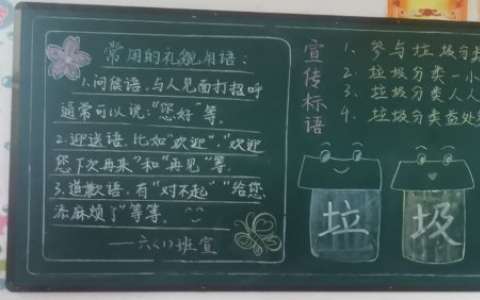 常用的礼貌用语：
1.问候语，与人见面打招呼
通常可以说："您好"等。
2.迎送语，比如"欢迎"，"欢迎
您下次再来"和"再见"等。
3.道歉语，有"对不起""给您
添麻烦了"等等。
——六(1)班宣
宣传标语
1、参与垃圾分
2、垃圾分类一小
3、垃圾分类人人
4、垃圾分类益处
垃
圾